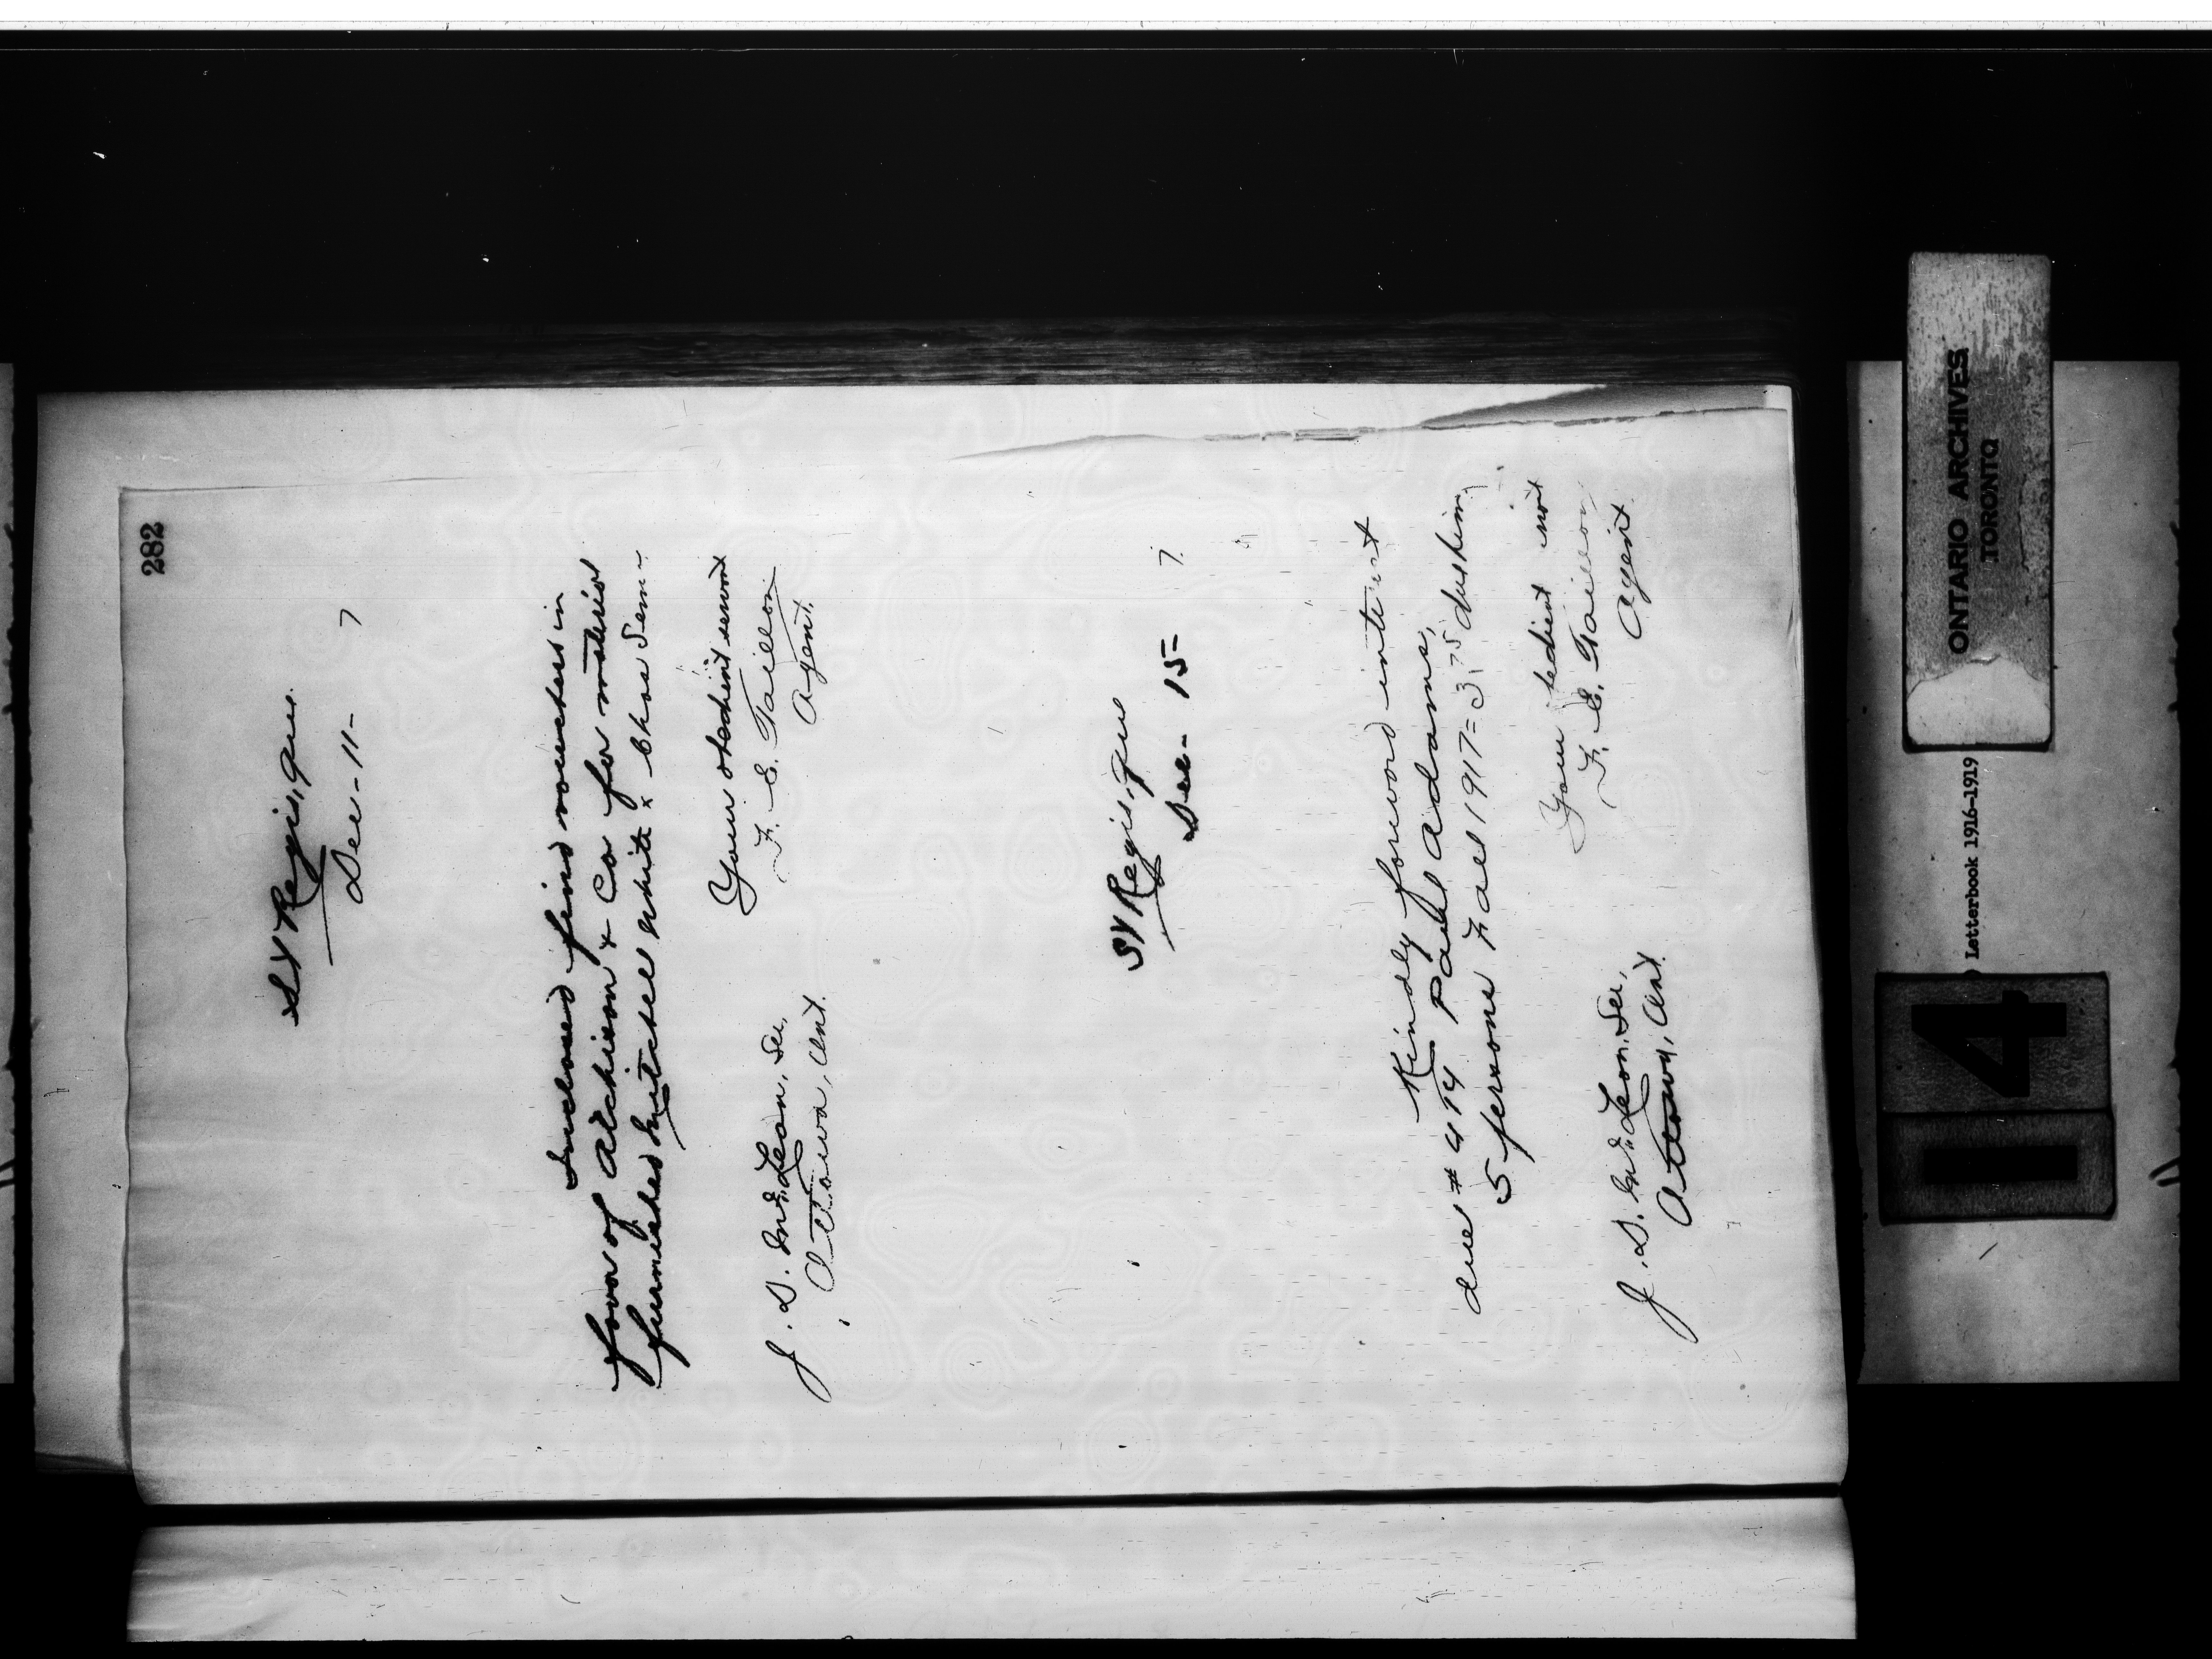 282
St Regis, Que.
Dec - 11 - 7
Inclosed find vouchers in
favor of Atchison & Co for material
furnished Mitchel White & Chas
Your obedient servant
F. E. Taillon
Agent.
J. D. McLean, Sec,
Ottawa, Ont.
St Regis, Que
Dec - 15 - 7
Kindly forward interest
due # 414 Paul Adams,
5 persons Fall 1917 = 3.75 due him.
Your obedient
F. E. Taillon
Agent
J. D. McLean, Sec,
Ottawa, Ont.
ONTARIO ARCHIVES
TORONTO
Letterbook 1916-1919
4